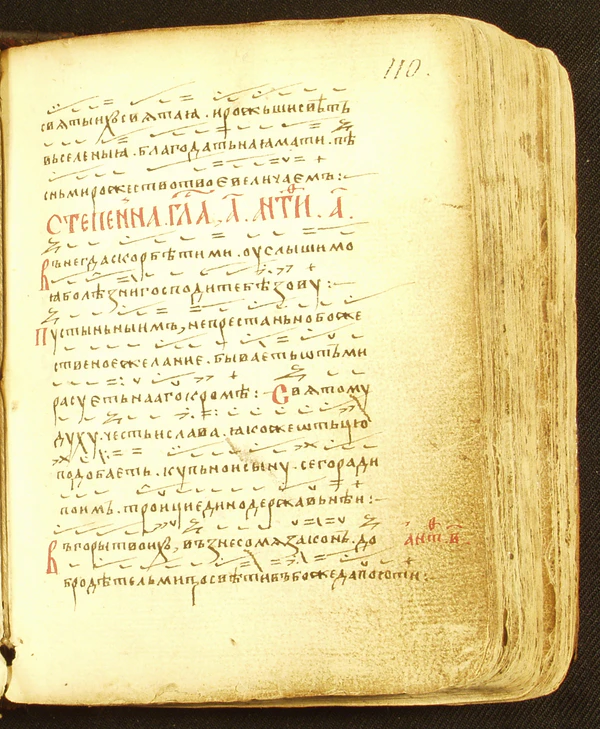 110.
святыихъ святая . и рожьшисвѣтъ
въселеныя . благодатьнаямати . пѣ
сньмирожествотвоевеличаемъ :
СТЕПЕННА . ГЛА . А . АНТИ . А .
Вънегдаскорбѣтими . оуслышимо
яболѣзнигосподитебѣзову :
Пустыньныимъ , непрестаньнобоже
ственоежелание . бываетьштъми
расуетьнаагокромѣ : Святому
духу . честьислава . якожештьцю
подобаеть . купьноисыну . сегоради
поимъ . троициединодержавьнѣи :
Въгорытвоихъ , възнесомязаконъ . до
АНТ . В .
бродѣтельмипросвѣтивъбожедапоютти :